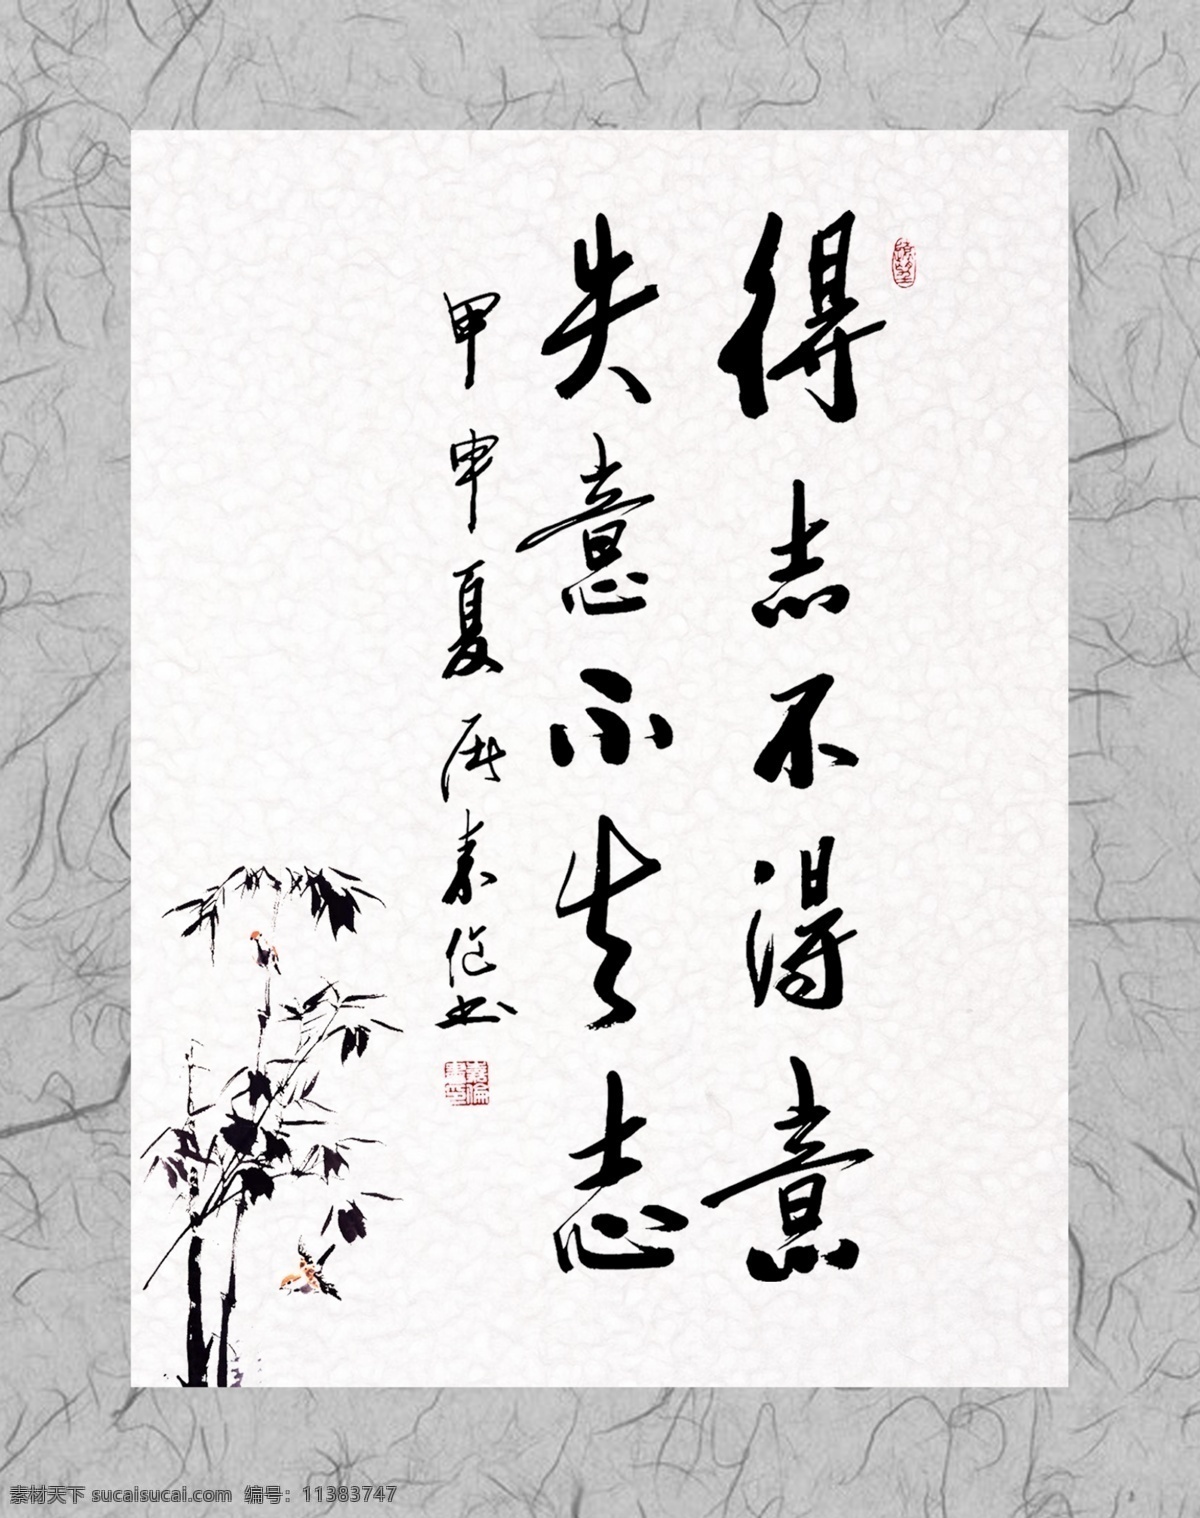 得志不得意
失意不失志
甲申夏
书
素材天下 sucaisucai.com 编号：11383747